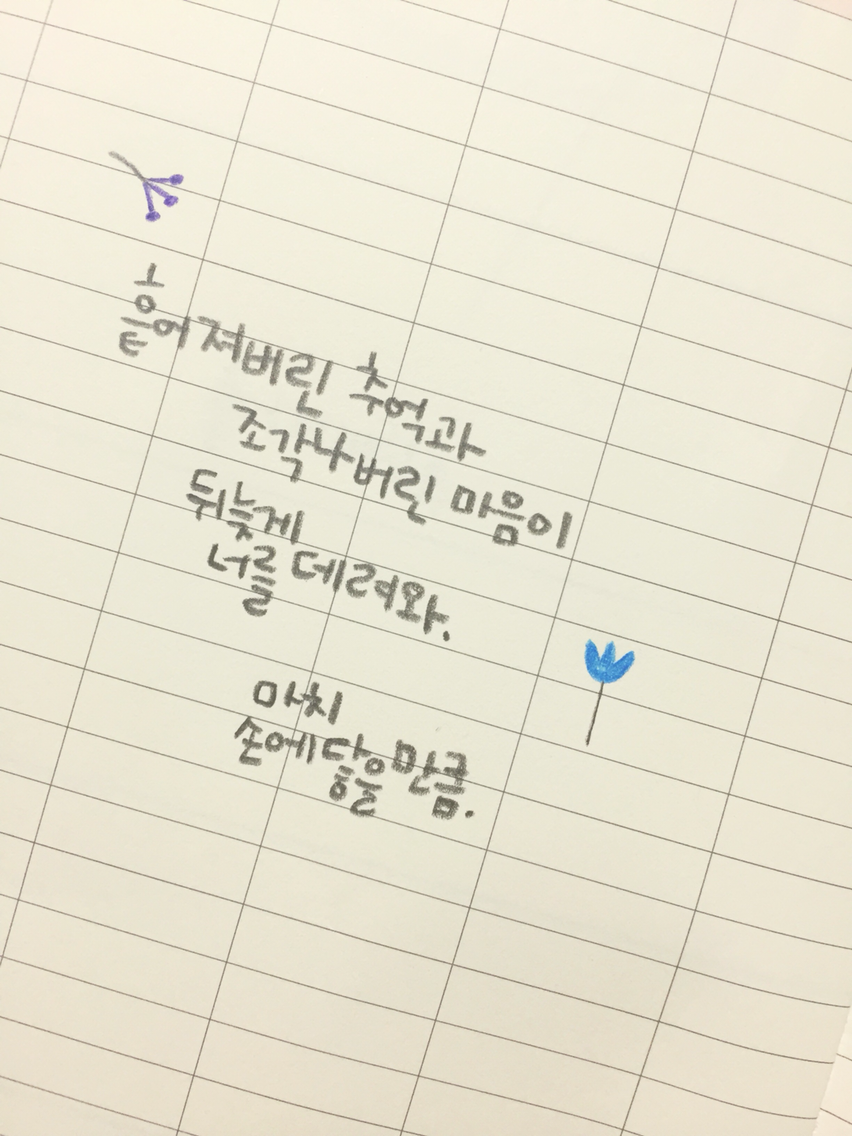 흩어져버린 추억과
조각나버린 마음이
뒤늦게
너를 데려와.
마치
손에 닿을 만큼.